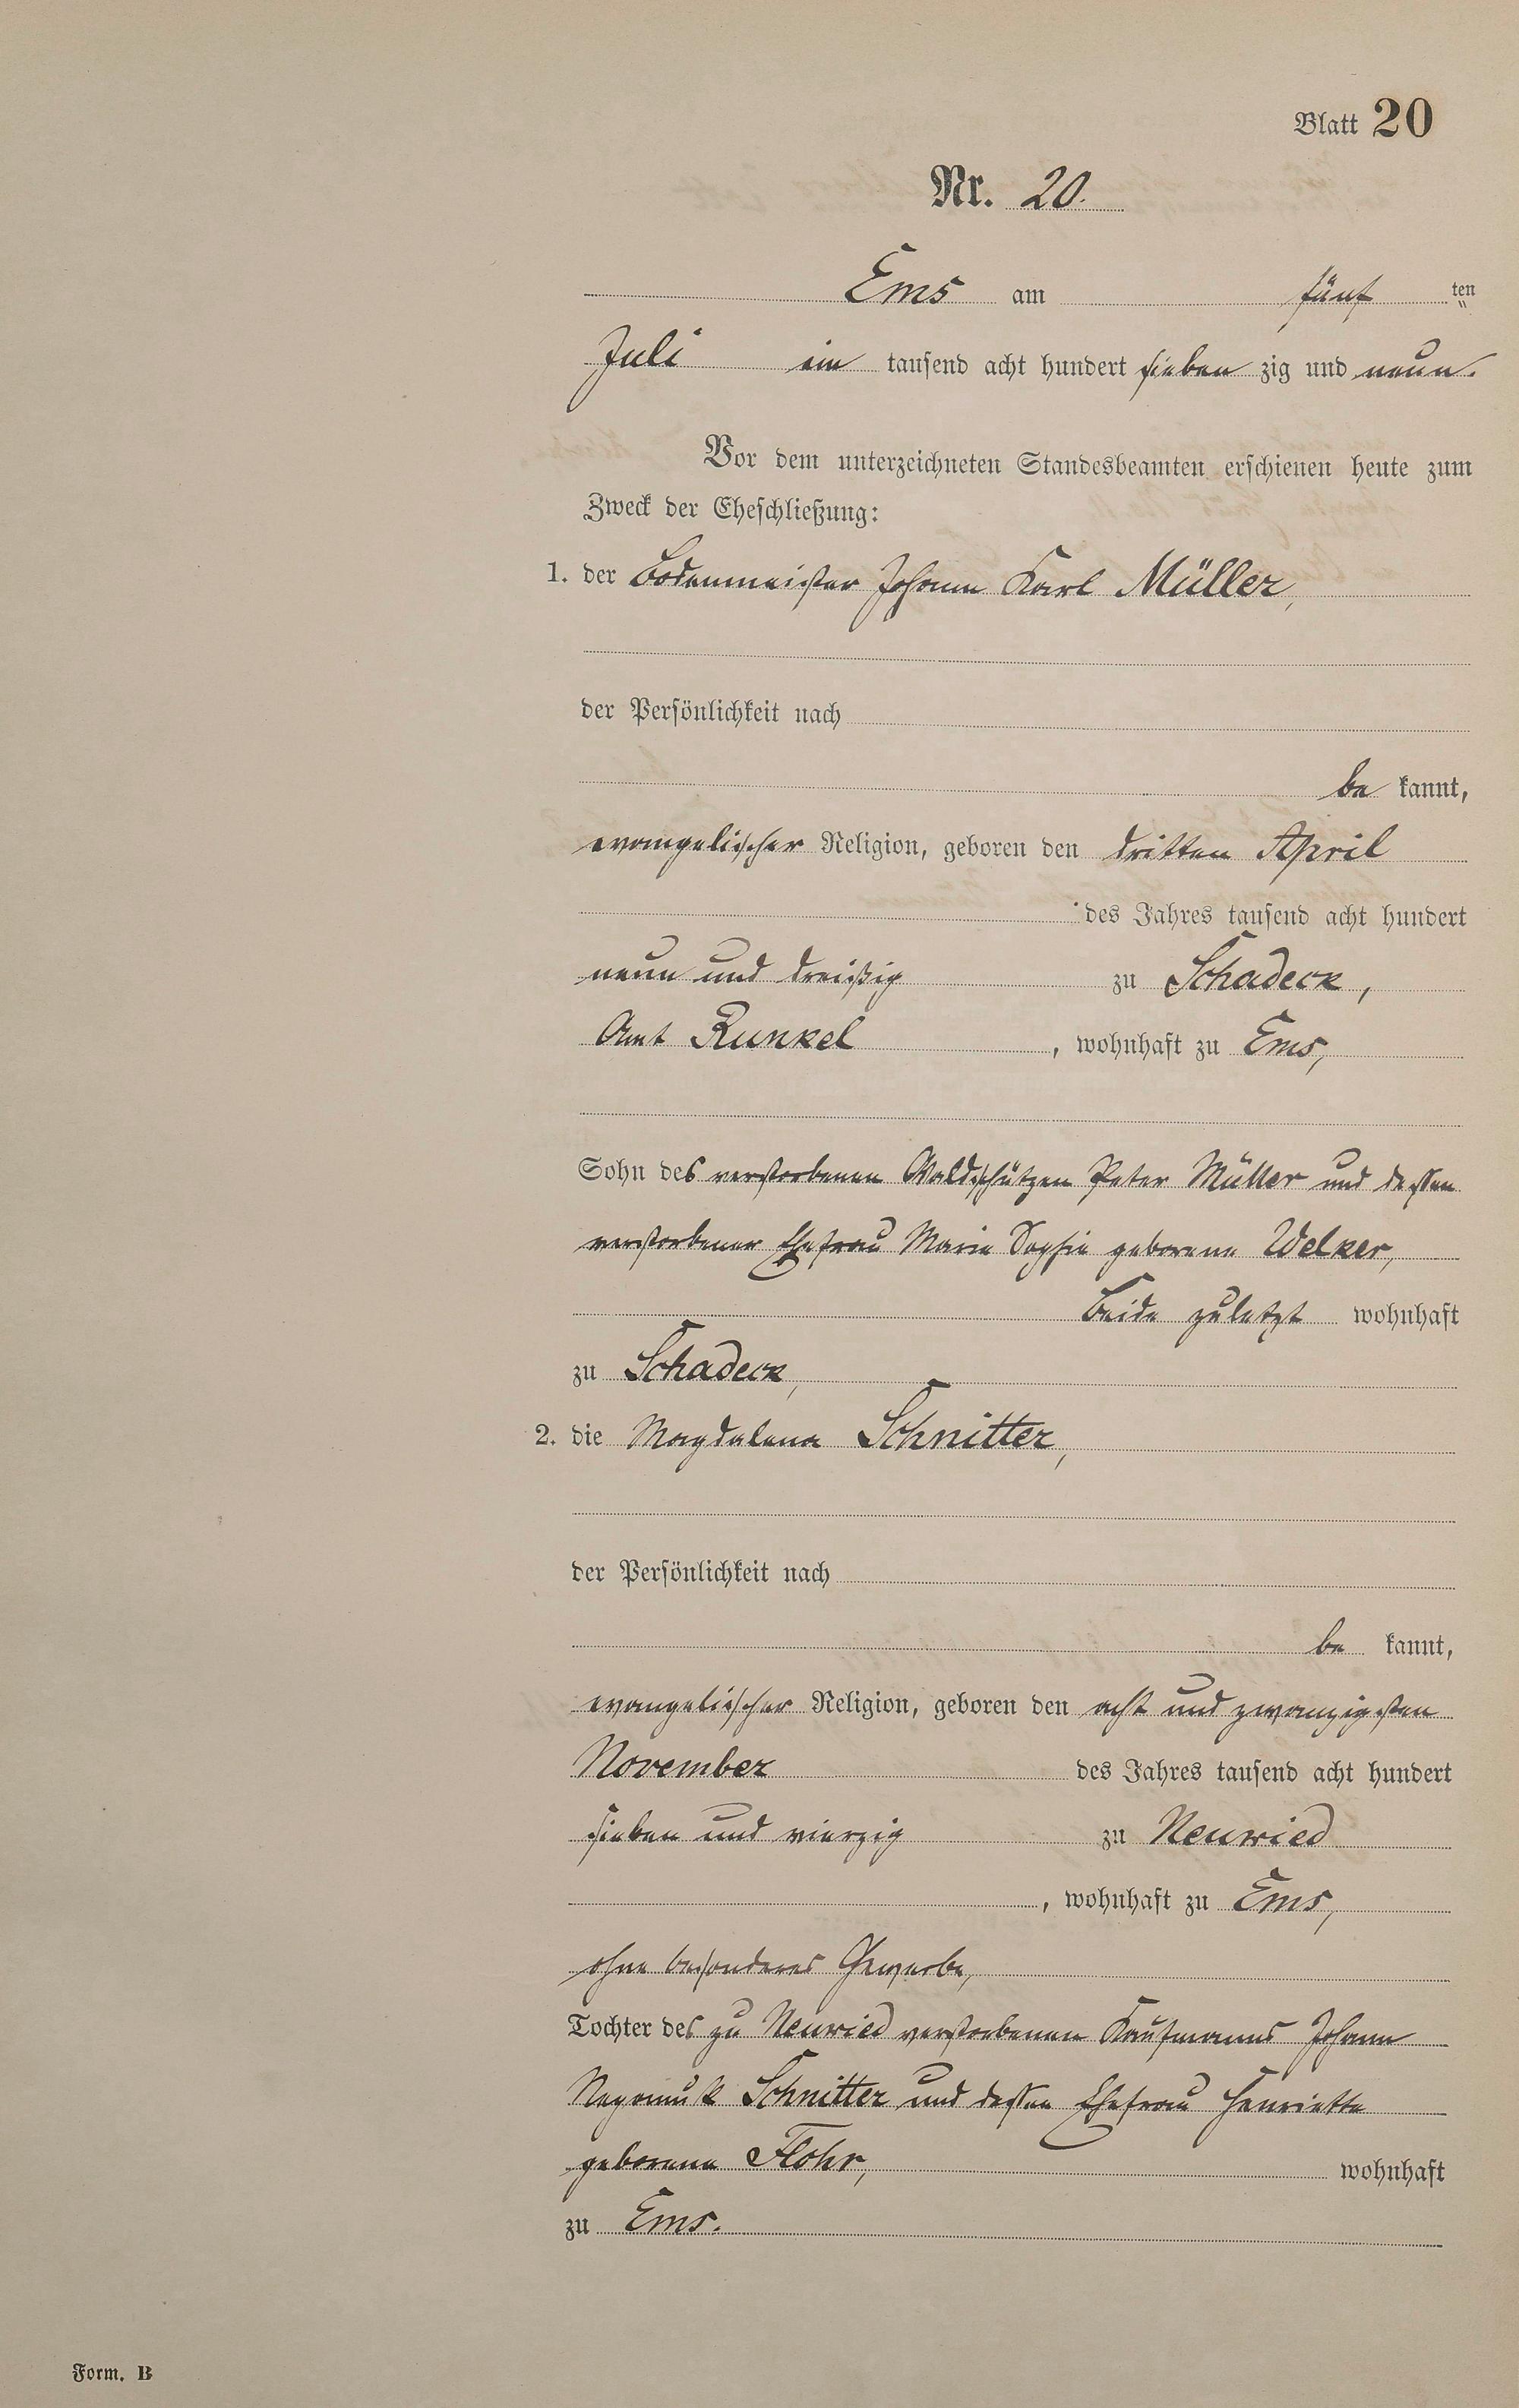 Blatt 20
Nr. 20.
Ems am fünf ten
Juli ein tausend acht hundert sieben zig und neun.
Vor dem unterzeichneten Standesbeamten erschienen heute zum
Zweck der Eheschließung:
1. der Bodenmeister Johann Karl Müller,
der Persönlichkeit nach
be kannt,
evangelischer Religion, geboren den dritten April
des Jahres tausend acht hundert
neun und dreißig zu Schadeck,
Amt Runkel, wohnhaft zu Ems,
Sohn des verstorbenen Waldschützen Peter Müller und dessen
verstorbener Ehefrau Marie Sophie geborene Welker,
beide zuletzt wohnhaft
zu Schadeck,
2. die Magdalena Schnitter,
der Persönlichkeit nach
be kannt,
evangelischer Religion, geboren den acht und zwanzigsten
November des Jahres tausend acht hundert
sieben und vierzig zu Neuwied
, wohnhaft zu Ems,
ohne besonderes Gewerbe,
Tochter des zu Neuwied verstorbenen Kaufmanns Johann
Nepomuk Schnitter und dessen Ehefrau Henriette
geborene Flohr, wohnhaft
zu Ems.
Form. B